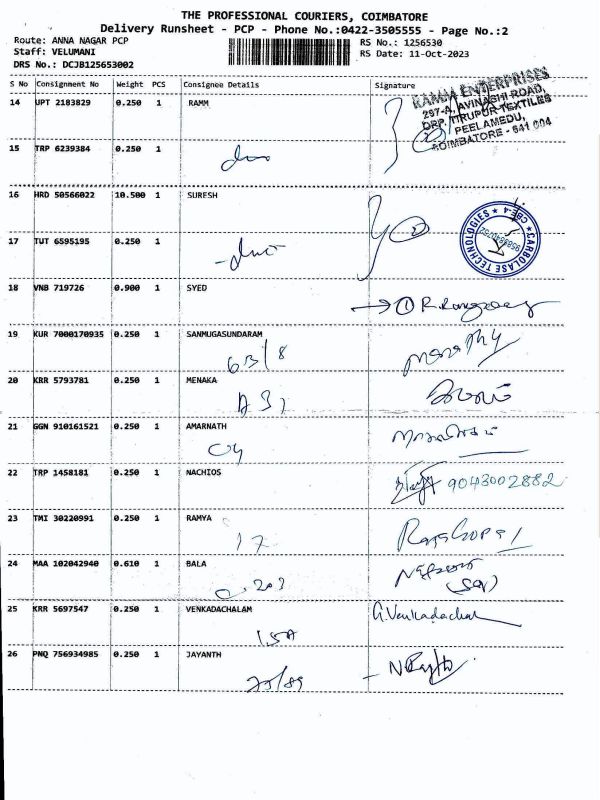 THE PROFESSIONAL COURIERS, COIMBATORE
Delivery Runsheet - PCP - Phone No.:0422-3505555 - Page No.:2
Route: ANNA NAGAR PCP
RS No.: 1256530
Staff: VELUMANI
RS Date: 11-Oct-2023
DRS No.: DCJB125653002
S No Consignment No Weight PCS Consignee Details Signature
RAMM ENTERPRISES
297-A, AVINASHI ROAD,
OPP. TIRUPUR TEXTILES
PEELAMEDU,
COIMBATORE - 641 004
14 UPT 2183829 0.250 1 RAMM
15 TRP 6239384 0.250 1
16 HRD 50566022 10.500 1 SURESH
CARBOLASE TECHNOLOGIES ★ CBE-4 ★
17 TUT 6595195 0.250 1
18 VNB 719726 0.900 1 SYED
19 KUR 7000170935 0.250 1 SANMUGASUNDARAM
63/8
20 KRR 5793781 0.250 1 MENAKA
21 GGN 910161521 0.250 1 AMARNATH
22 TRP 1458181 0.250 1 NACHIOS
9043002882
23 TMI 30220991 0.250 1 RAMYA
17 RajaGopal
24 MAA 102042940 0.610 1 BALA
25 KRR 5697547 0.250 1 VENKADACHALAM
15A G.Venkadachal
26 PNQ 756934985 0.250 1 JAYANTH